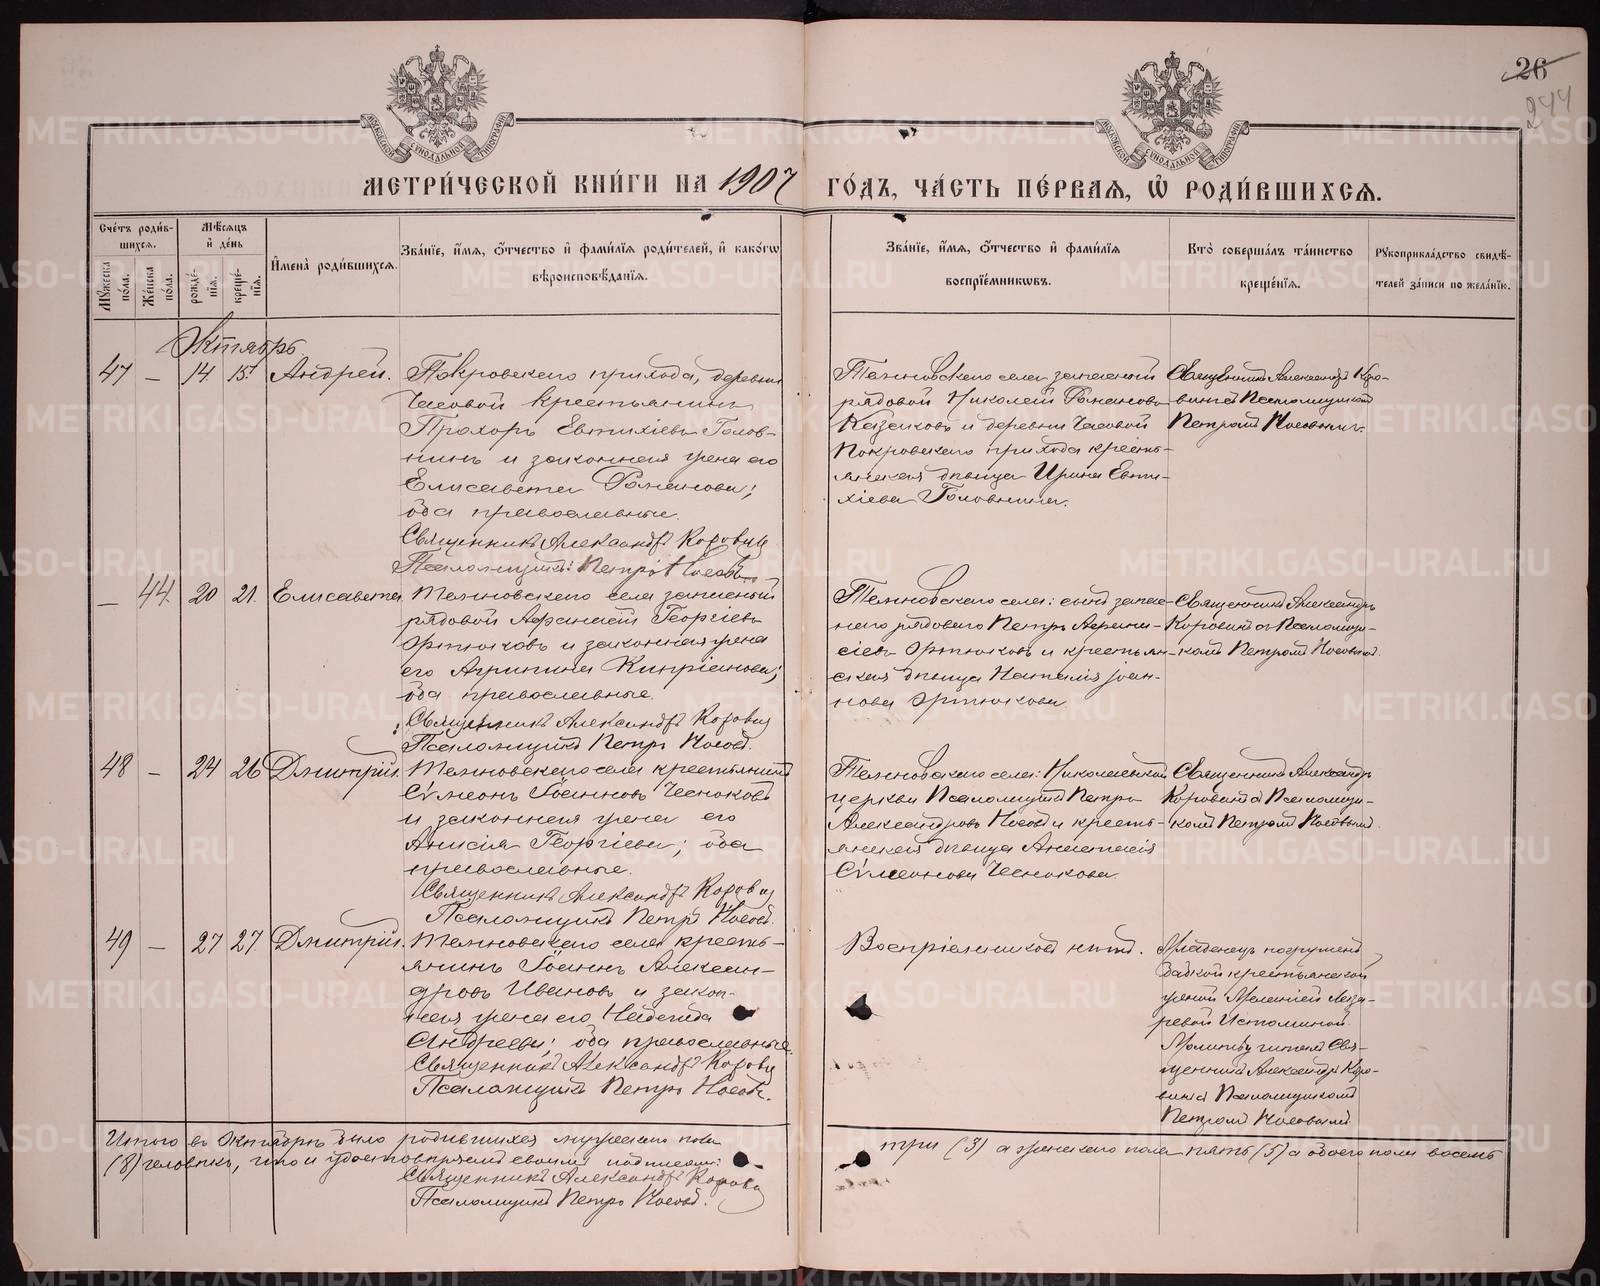 26
244
МЕТРИ́ЧЕСКОЙ КНИ́ГИ НА 1907 ГО́ДЪ, ЧА́СТЬ ПЕ́РВАЯ, Ѡ РОДИ́ВШИХСЯ.
Сче́тъ роди́вшихся.
Му́жеска по́ла.
Же́нска по́ла.
Мѣ́сяцъ и де́нь
рожде́нія.
креще́нія.
И́мена роди́вшихся.
Зва́ніе, и́мя, о́тчество и фами́лія роди́телей, и како́гѡ
вѣроисповѣ́данія.
Зва́ніе, и́мя, о́тчество и фами́лія
воспріе́мникѡвъ.
Кто̀ соверша́лъ та́инство
креще́нія.
Рукоприкла́дство свидѣ́-
телей за́писи по жела́нію.
Октябрь
47 — 14 15 Андрей.
Покровскаго прихода, деревни
Часовой крестьянинъ
Прохоръ Евтихіевъ Голов-
нинъ и законная жена его
Елисавета Романова;
оба православные.
Священникъ Александръ Коровинъ
Псаломщикъ Петръ Носовъ
рядовой Николай Романовъ
Казаковъ и деревни Часовой
Покровскаго прихода кресть-
янская дѣвица Ирина Евти-
хіева Головнина.
Священникъ Александръ Коро-
винъ съ Псаломщикомъ
Петромъ Носовымъ.
— 44 20 21. Елисавета
рядовой Афанасій Георгіевъ
и законная жена
его Агрипина Кипріанова;
оба православные.
Священникъ Александръ Коровинъ
Псаломщикъ Петръ Носовъ.
села: сынъ запас-
наго рядового Петръ Афана-
сіевъ и крестьян-
ская дѣвица Наталія Іоан-
нова
Священникъ Александръ
Коровинъ съ Псаломщи-
комъ Петромъ Носовымъ.
48 — 24 26 Дмитрій.
села крестьянинъ
Сѵмеонъ Іоанновъ Чесноковъ
и законная жена его
Анисія Георгіева; оба
православные.
Священникъ Александръ Коровинъ
Псаломщикъ Петръ Носовъ.
села: Николаевской
церкви Псаломщикъ Петръ
Александровъ Носовъ и кресть-
янская дѣвица Анастасія
Сѵмеонова Чеснокова.
Священникъ Александръ
Коровинъ съ Псаломщи-
комъ Петромъ Носовымъ.
49 — 27 27. Дмитрій.
села кресть-
янинъ Іоаннъ Алексан-
дровъ Ивановъ и закон-
ная жена его Надежда
Андреева; оба православные.
Священникъ Александръ Коровинъ
Псаломщикъ Петръ Носовъ.
Воспріемниковъ нѣтъ.
Младенецъ погруженъ
бабкой крестьянской
женой Меланіей Лаза-
ревой Истоминой.
Молитву читалъ Свя-
щенникъ Александръ Коро-
винъ съ Псаломщикомъ
Петромъ Носовымъ
Итого въ Октябрѣ было родившихся мужескаго пола три (3) а женскаго пола пять (5) а обоего пола восемь
(8) человѣкъ, что и удостовѣряемъ своими подписями:
Священникъ Александръ Коровинъ
Псаломщикъ Петръ Носовъ.
METRIKI.GASO-URAL.RU